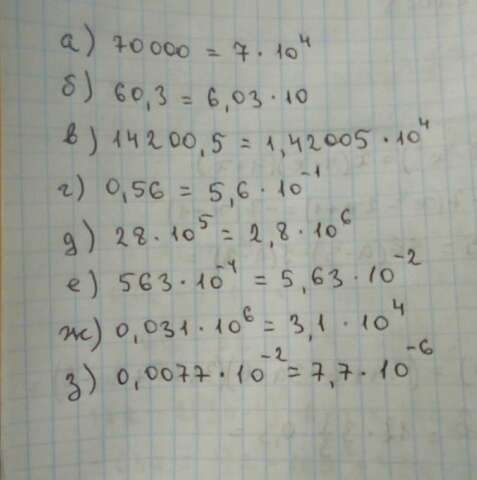 а) 70000 = 7 · 10⁴
б) 60,3 = 6,03 · 10
в) 14200,5 = 1,42005 · 10⁴
г) 0,56 = 5,6 · 10⁻¹
д) 28 · 10⁵ = 2,8 · 10⁶
е) 563 · 10⁻⁴ = 5,63 · 10⁻²
ж) 0,031 · 10⁶ = 3,1 · 10⁴
з) 0,0077 · 10⁻² = 7,7 · 10⁻⁶